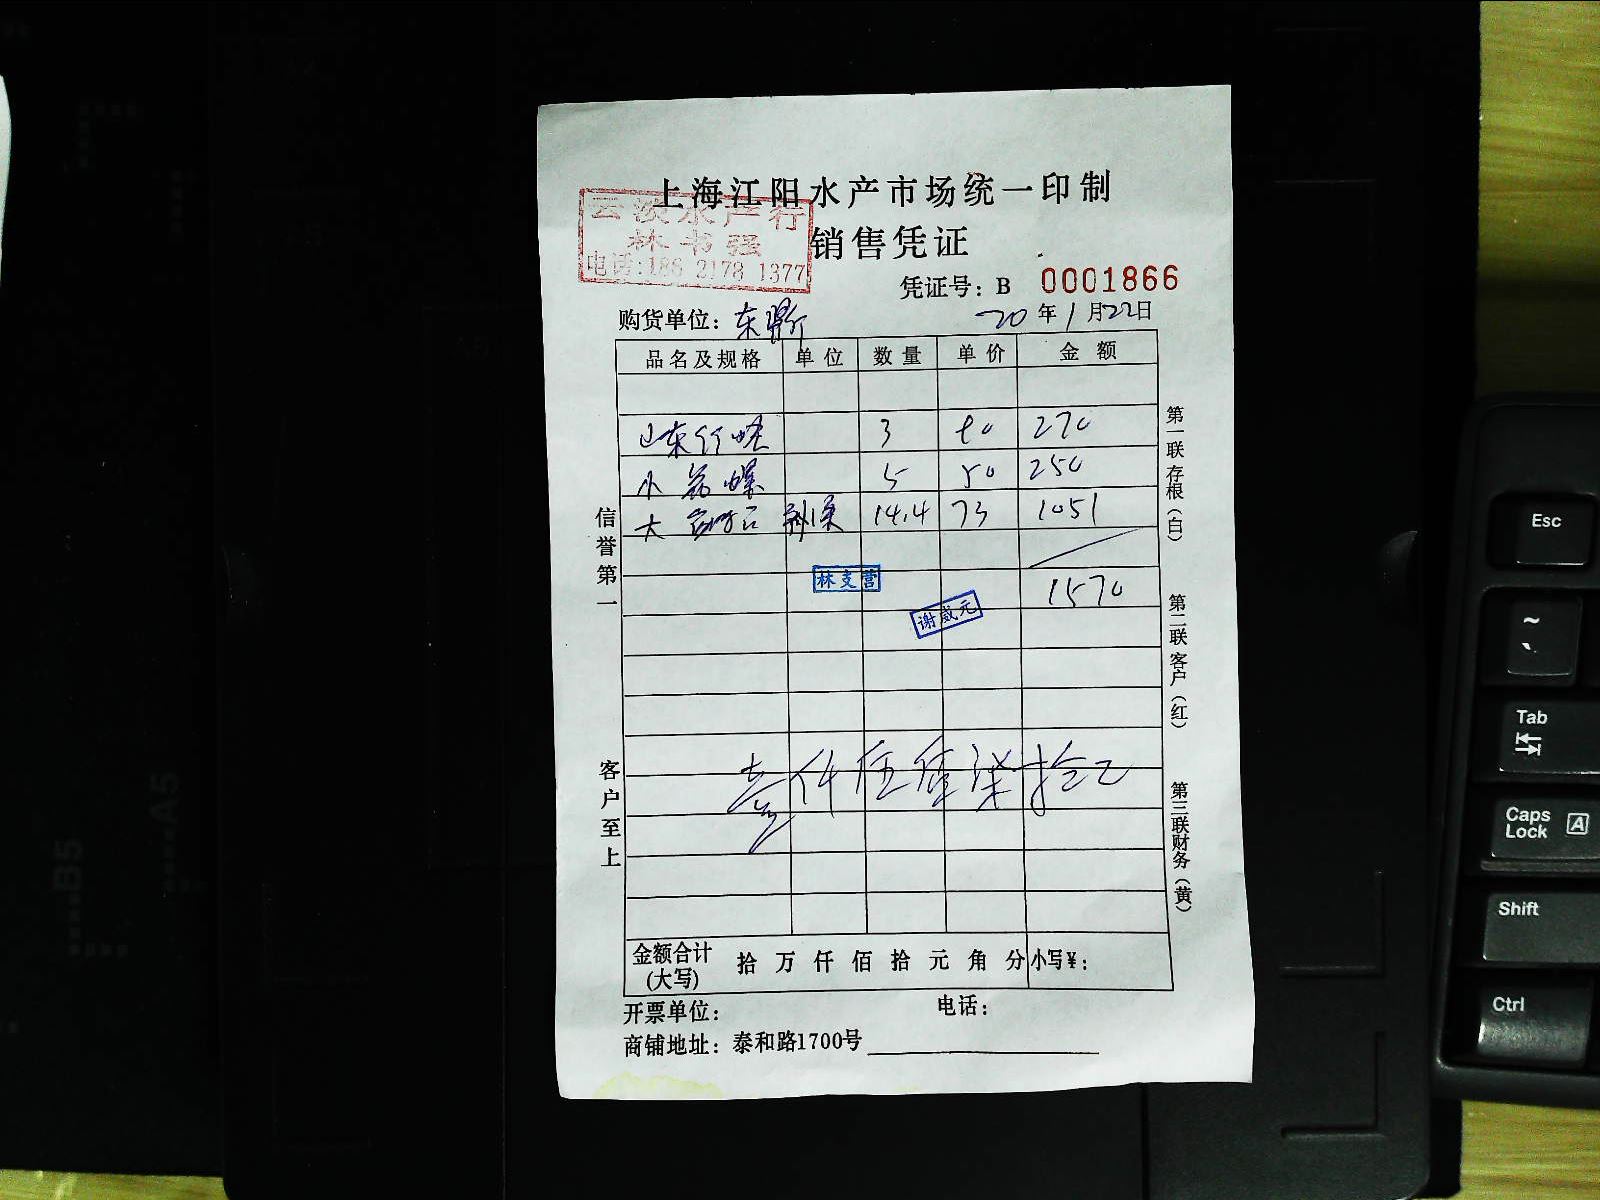 上海江阳水产市场统一印制
云淡水产行
林书强
电话:186 2178 1377
销售凭证
凭证号: B 0001866
购货单位: 东
20年1月22日
品名及规格 单位 数量 单价 金额
山东竹蛏 3 90 270
小 螺 5 50 250
大 14.4 73 1051
1570
林支营
谢威元
壹仟伍佰柒拾元
金额合计(大写) 拾 万 仟 佰 拾 元 角 分 小写¥:
开票单位: 电话:
商铺地址: 泰和路1700号
信誉第一
客户至上
第一联存根(白)
第二联客户(红)
第三联财务(黄)
Esc
~
`
Tab
Caps Lock A
Shift
Ctrl
A5
B5